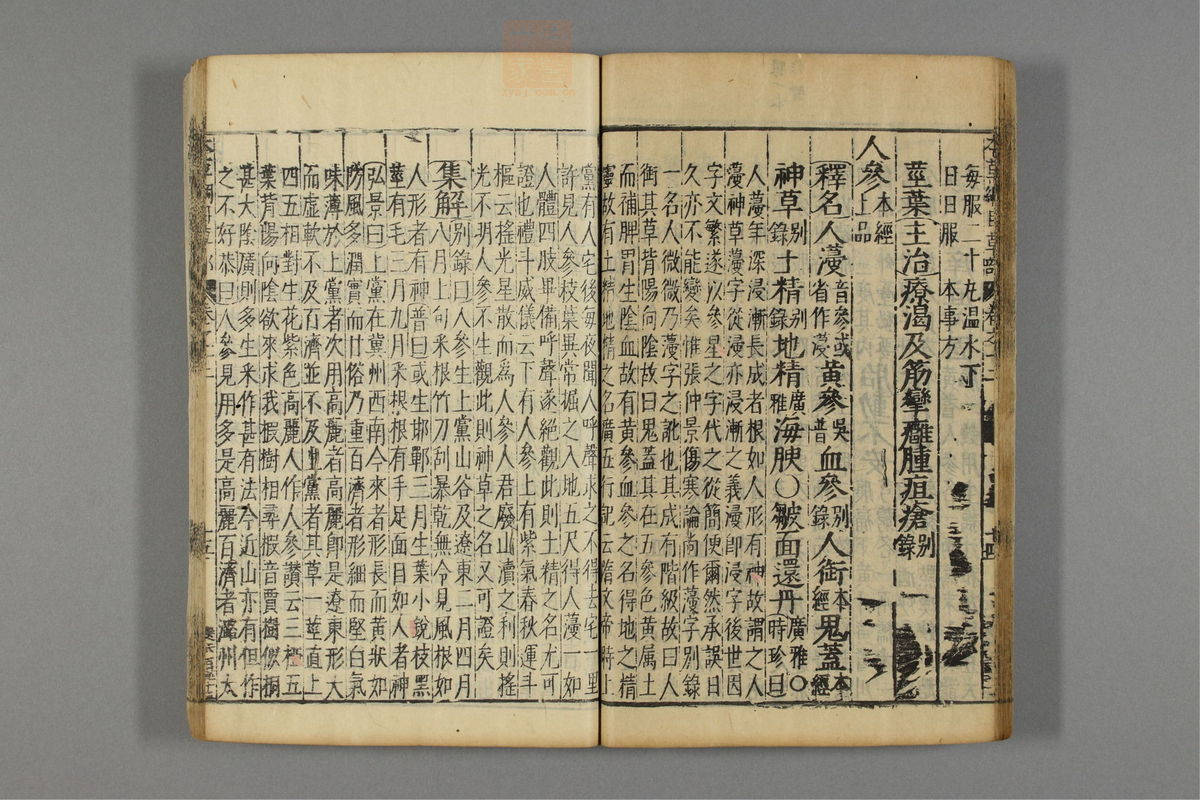 每服二十丸温水下
日日服 本事方
莖葉主治療渴及筋攣癰腫疽瘡别錄
人參本經上品
釋名人薓音參或省作蓡黃參吳普血參别錄人銜本經鬼蓋本經
神草别錄土精别錄地精廣雅海腴〇皺面還丹廣雅〇時珍曰
人薓年深浸漸長成者根如人形有神故謂之人
薓神草薓字從浸亦浸漸之義浸即浸字後世因
字文繁遂以參星之字代之從簡便爾然承誤日
久亦不能變矣惟張仲景傷寒論尚作薓字别錄
一名人微微乃薓字之訛也其成有階級故曰人
銜其草背陽向陰故曰鬼蓋其在五參色黃属土
而補脾胃生陰血故有黃參血參之名得地之精
靈故有土精地精之名廣五行記云隋文帝時上
黨有人宅後每夜聞人呼聲求之不得去宅一里
許見人參枝葉異常掘之入地五尺得人薓一如
人體四肢畢備呼聲遂絕觀此則土精之名尤可
證也禮斗威儀云下有人參上有紫氣春秋運斗
樞云摇光星散而為人參人君廢山瀆之利則搖
光不明人參不生觀此則神草之名又可證矣
集解别錄曰人參生上黨山谷及遼東二月四月
八月上旬采根竹刀刮暴乾無令見風根如
人形者有神普曰或生邯鄲三月生葉小銳枝黑
莖有毛三月九月采根根有手足面目如人者神
弘景曰上黨在冀州西南今來者形長而黃狀如
防風多潤實而甘俗乃重百濟者形細而堅白氣
味薄於上黨者次用高麗者高麗即是遼東形大
而虛軟不及百濟並不及上黨者其草一莖直上
四五相對生花紫色高麗人作人參讚云三椏五
葉背陽向陰欲來求我椵樹相尋椵音賈樹似桐
甚大陰廣則多生采作甚有法今近山亦有但作
之不好恭曰人參見用多是高麗百濟者潞州太